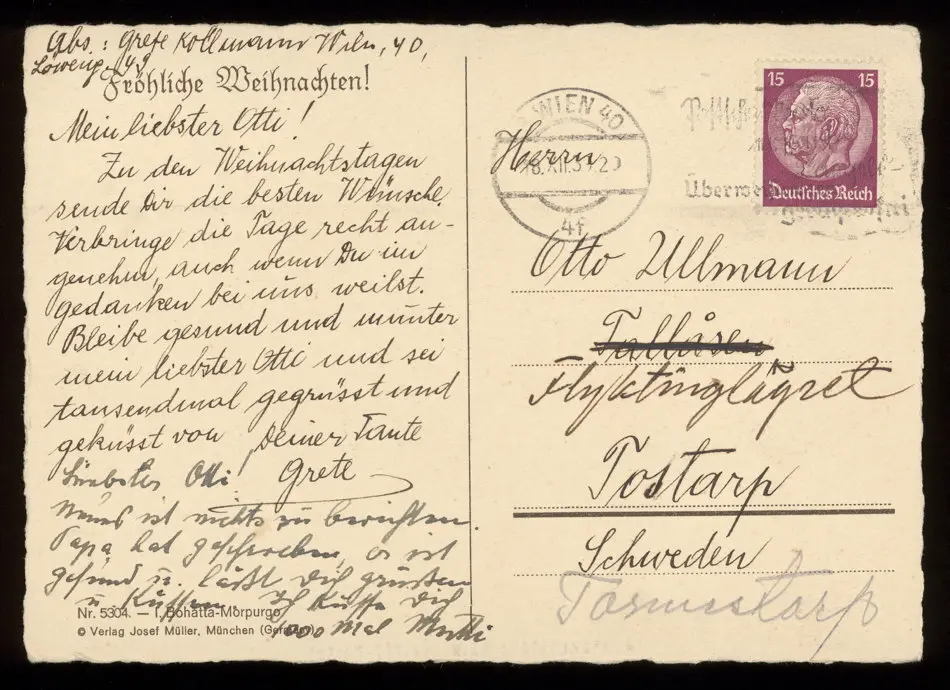 Abs.: Grete Kollmann Wien, 40,
Löweng. 49
Fröhliche Weihnachten!
Mein liebster Otti!
Zu den Weihnachtstagen
sende Dir die besten Wünsche.
Verbringe die Tage recht an-
genehm, auch wenn Du im
gedanken bei uns weilst.
Bleibe gesund und munter
mein liebster Otti und sei
tausendmal gegrüsst und
geküsst von Deiner Tante
Grete
Liebster Otti!
ist nichts zu berichten.
Papa hat geschrieben, er ist
gesund u. läßt Dich grüssen
u. küssen. Ich küsse Dich
1000 mal Mutti
Nr. 5304. — I. Bohatta-Morpurgo
© Verlag Josef Müller, München (Germany)
WIEN 40
4f
Überwei
15 15
Deutsches Reich
Herrn
Otto Ullmann
Tallåsen
Flyktinglägret
Tostarp
Schweden
Tormestorp